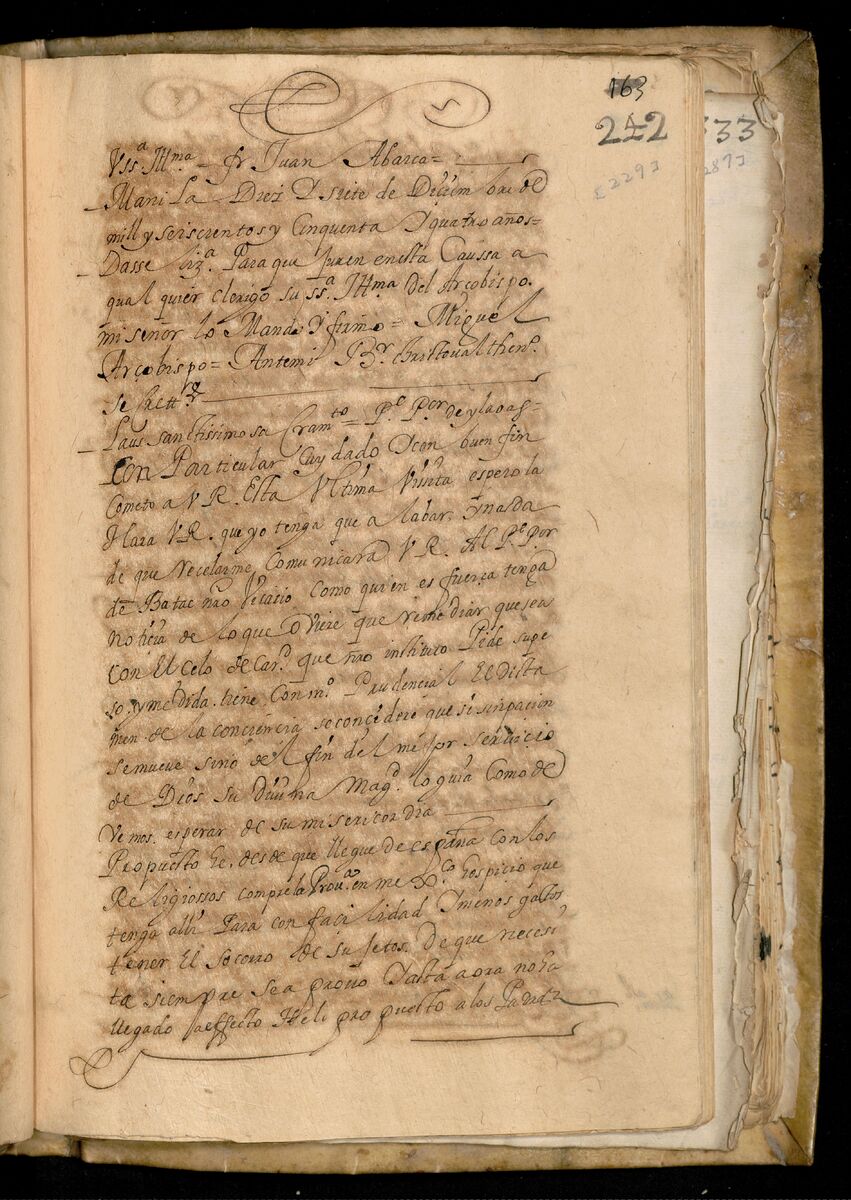 163
242
333
[229]
289]
Vss.ª Ill.ma = fr Juan Abarca =
Manila Diez Y siete de Diziembre de
mill y seiscientos y Cinquenta Y quatro años =
Dasse liz.ª Para que juren en esta Caussa a
qual quier clerigo su ss.ª Ill.ma del Arçobispo.
mi señor lo Mandó Y firmó = Miguel
Arçobispo = Antemi B.r christoval then.º
secrett.º
Laus sanctissimo sacram.to = P.e P.or de ylaoag =
Con Particular Cuydado Y con buen fin
Cometo a V R. Esta Ultima Visita espero la
Hara V R. que yo tenga que a labar, y nada
de que recelarme Comunicara V R. Al P.e P.or
de Batac não Vecasio Como quien es fuerça tenga
noticia de lo que Oviere que remediar que sea
Con El Celo de Car.d que não instituto Pide supe
so, y medida. tiene Con m.º Prudencial El dicta
men de la conciencia se conçedere que si sin pacion
se mueve sino de el fin del mejor servicio
de Dios su divina Mag.d lo guia Como de
Vemos esperar de su misericordia
Propuesto he. desde que llegue de españa con los
Religiossos compre la Prou.ª en mexico hospicio que
tenga alli Para con facilidad Y menos gastos
tener El socorro de sujetos, De que necesi
ta siempre sea provio Y asta aora no ha
llegado a effecto Heli propuesto a los Padrez